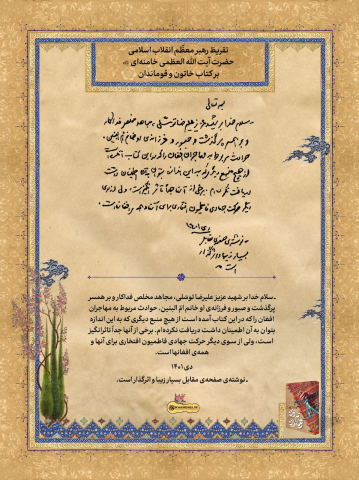 تقریظ رهبر معظّم انقلاب اسلامی
حضرت آیت الله العظمی خامنه‌ای
بر کتاب خاتون و قوماندان
بسمه تعالی
سلام خدا بر شهید عزیز علیرضا توسّلی، مجاهد مخلص فداکار
و بر همسر پرگذشت و صبور و فرزانه‌ی او خانم امّ البنین.
حوادث مربوط به مهاجران افغان را که در این کتاب آمده است
از هیچ منبع دیگری که به این اندازه بتوان به آن اطمینان داشت
دریافت نکرده‌ام. برخی از آن جداً تأثرانگیز است، ولی از سوی
دیگر حرکت جهادی فاطمیون افتخاری برای آنها و همه‌ی افغانهاست.
دی ۱۴۰۱
- نوشته‌ی صفحه‌ی مقابل
بسیار زیبا و اثرگذار
است
ـ سلام خدا بر شهید عزیز علیرضا توسّلی، مجاهد مخلص فداکار و بر همسر
پرگذشت و صبور و فرزانه‌ی او خانم امّ البنین. حوادث مربوط به مهاجران
افغان را که در این کتاب آمده است از هیچ منبع دیگری که به این اندازه
بتوان به آن اطمینان داشت دریافت نکرده‌ام. برخی از آنها جداً تاثرانگیز
است، ولی از سوی دیگر حرکت جهادی فاطمیون افتخاری برای آنها و
همه‌ی افغانهاست.
دی ۱۴۰۱
ـ نوشته‌ی صفحه‌ی مقابل بسیار زیبا و اثرگذار است.